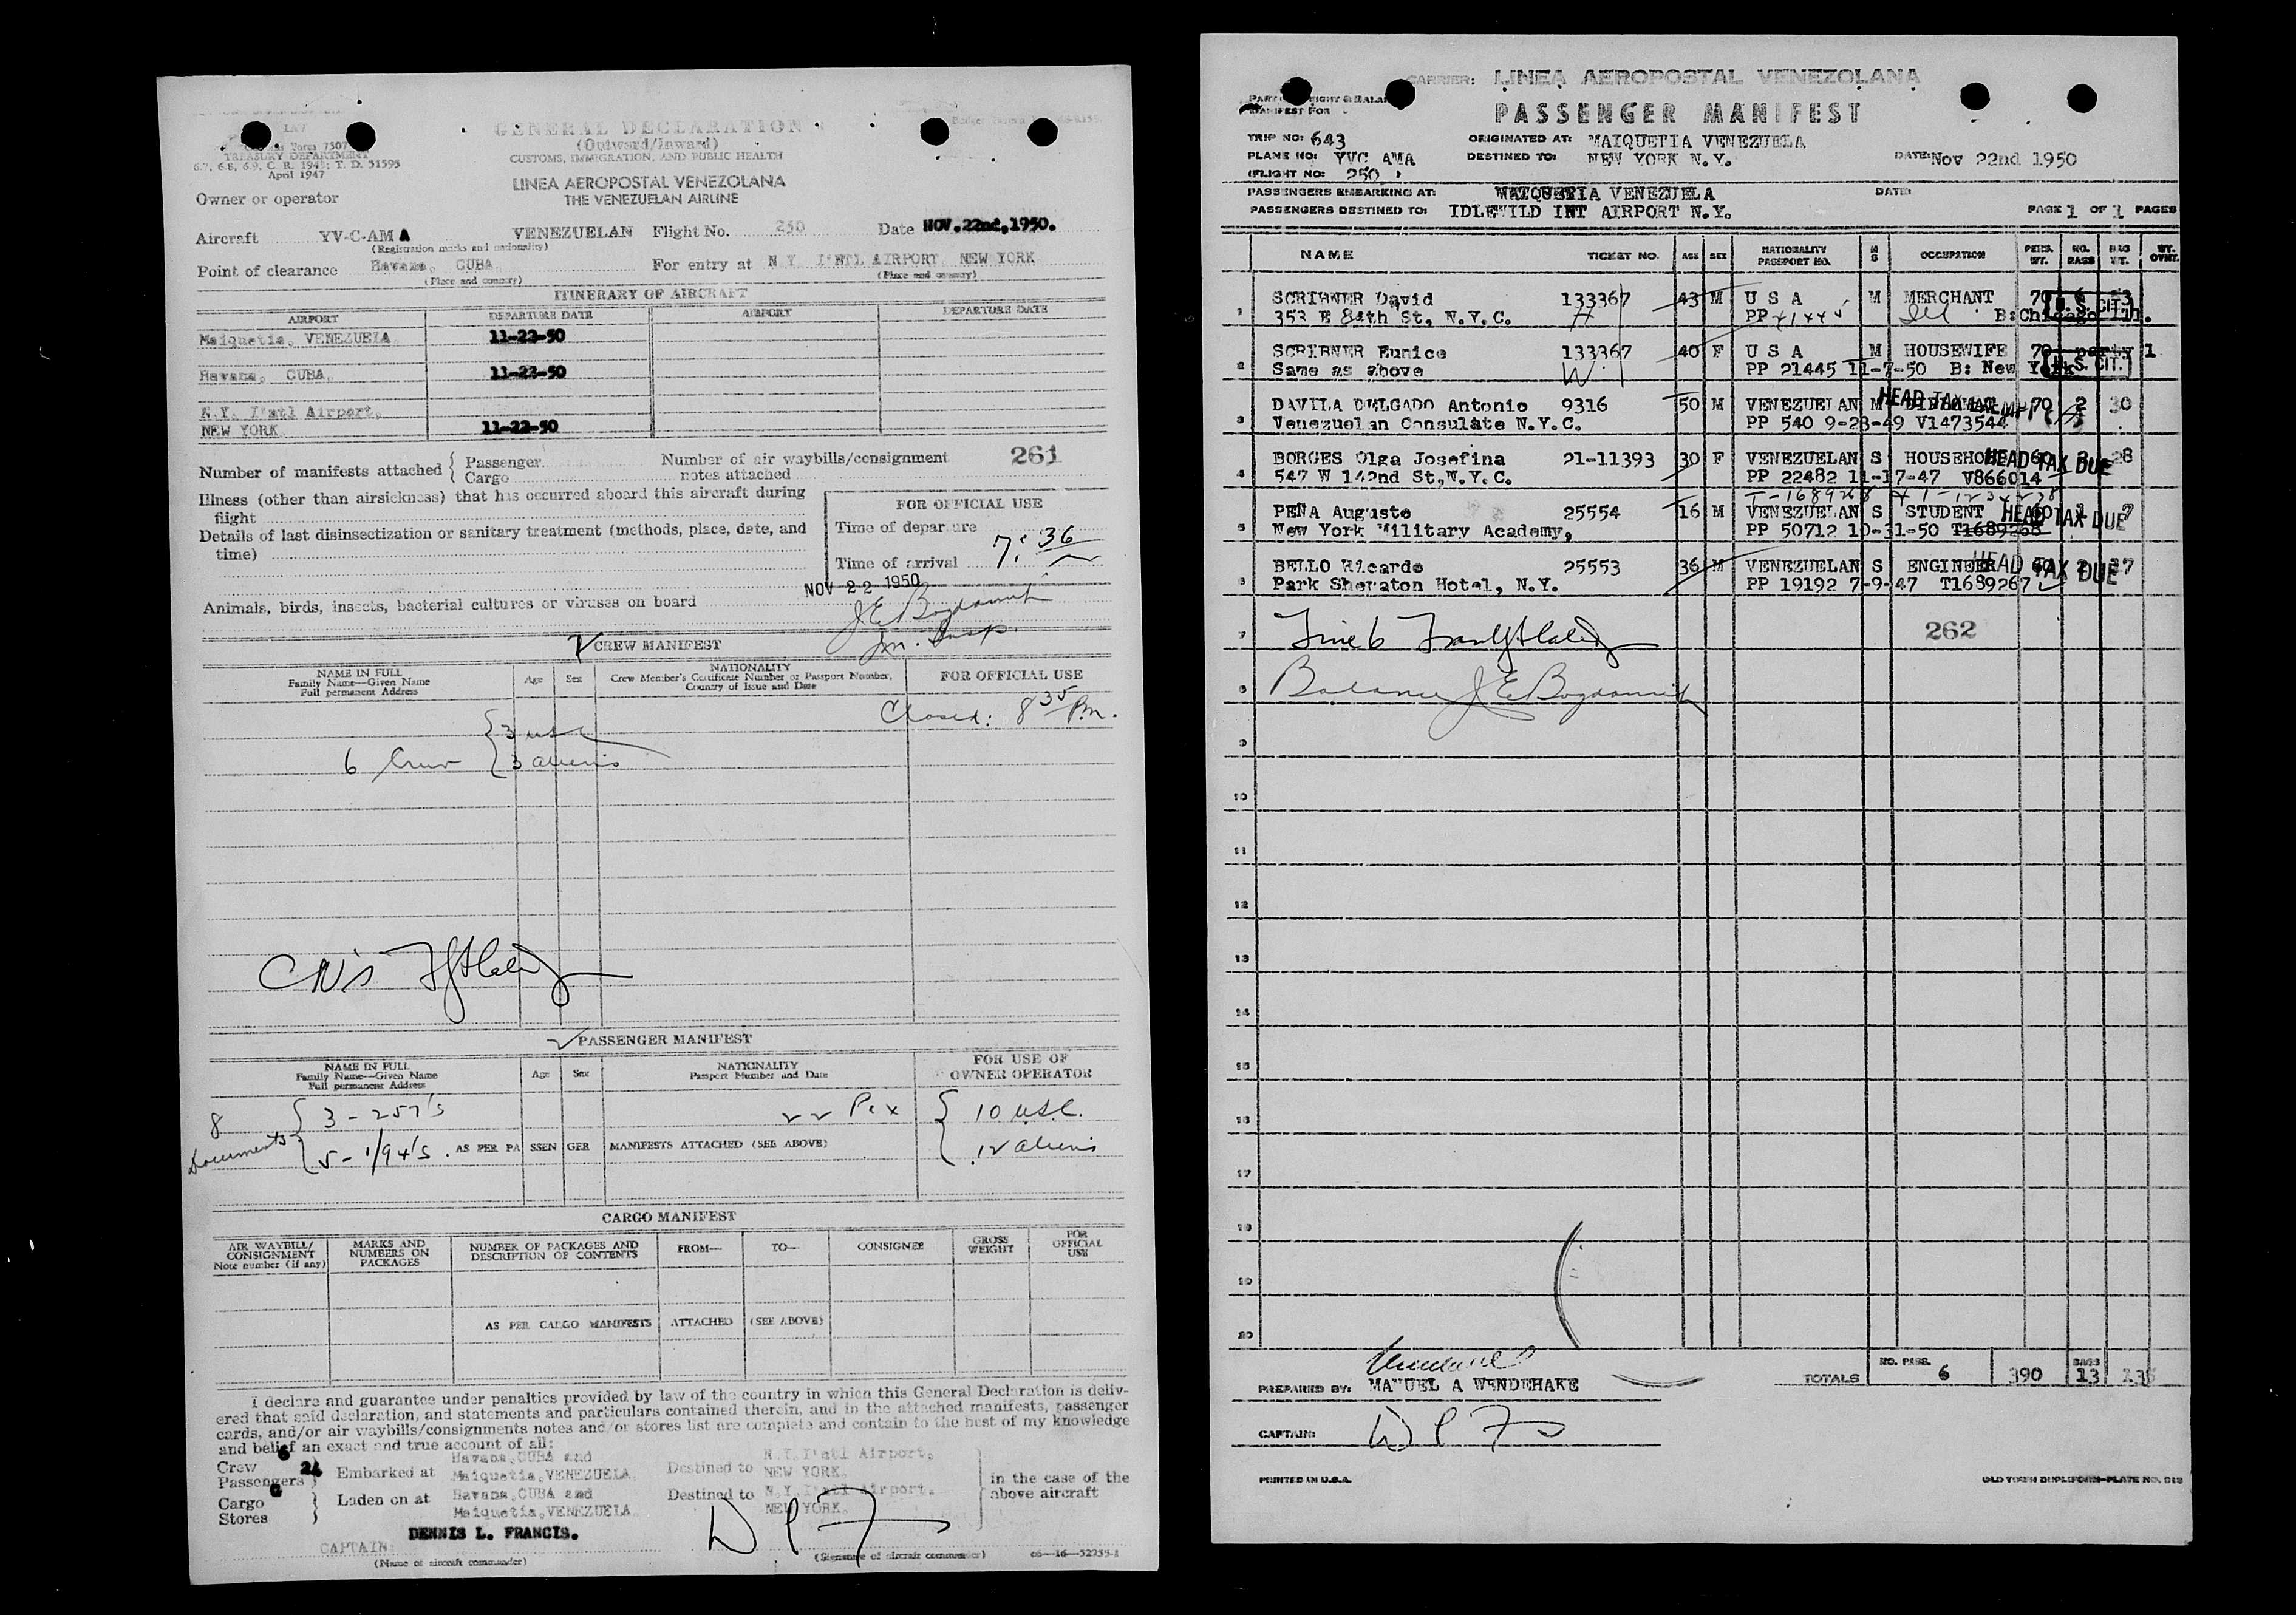 LAV
Customs Form 7507
TREASURY DEPARTMENT
6.7, 6.8, 6.9, C. R. 1943; T. D. 51595
April 1947
GENERAL DECLARATION
(Outward/Inward)
CUSTOMS, IMMIGRATION, AND PUBLIC HEALTH
LINEA AEROPOSTAL VENEZOLANA
THE VENEZUELAN AIRLINE
Owner or operator
Aircraft YV-C-AM A VENEZUELAN Flight No. 250 Date NOV.22nd,1950.
(Registration marks and nationality)
Point of clearance Havana, CUBA For entry at N Y I'NTL AIRPORT NEW YORK
(Place and country) (Place and country)
ITINERARY OF AIRCRAFT
AIRPORT DEPARTURE DATE AIRPORT DEPARTURE DATE
Maiquetia, VENEZUELA 11-22-50
Havana, CUBA. 11-22-50
N.Y. I'ntl Airport.
NEW YORK 11-22-50
Number of manifests attached { Passenger Number of air waybills/consignment 261
Cargo notes attached
Illness (other than airsickness) that has occurred aboard this aircraft during
flight
Details of last disinsectization or sanitary treatment (methods, place, date, and
time)
FOR OFFICIAL USE
Time of departure
Time of arrival 7:36
NOV 22 1950
Animals, birds, insects, bacterial cultures or viruses on board
CREW MANIFEST
NAME IN FULL
Family Name—Given Name
Full permanent Address
Age Sex
NATIONALITY
Crew Member's Certificate Number or Passport Number,
Country of Issue and Date
FOR OFFICIAL USE
Closed: 8 35 P.m.
6 Crew { 3 usc
3 aliens
PASSENGER MANIFEST
NAME IN FULL
Family Name—Given Name
Full permanent Address
Age Sex
NATIONALITY
Passport Number and Date
FOR USE OF
OWNER OPERATOR
8 Documents { 3 - 257's
5 - 1/94's.
22 Pax { 10 usc.
12 aliens
AS PER PASSENGER MANIFESTS ATTACHED (SEE ABOVE)
CARGO MANIFEST
AIR WAYBILL/
CONSIGNMENT
Note number (if any)
MARKS AND
NUMBERS ON
PACKAGES
NUMBER OF PACKAGES AND
DESCRIPTION OF CONTENTS
FROM— TO— CONSIGNEE
GROSS
WEIGHT
FOR
OFFICIAL
USE
AS PER CARGO MANIFESTS ATTACHED (SEE ABOVE)
I declare and guarantee under penalties provided by law of the country in which this General Declaration is deliv-
ered that said declaration, and statements and particulars contained therein, and in the attached manifests, passenger
cards, and/or air waybills/consignments notes and/or stores list are complete and contain to the best of my knowledge
and belief an exact and true account of all:
Crew 6
Passengers
Embarked at Havana,CUBA and
Maiquetia,VENEZUELA.
Destined to N.Y.I'ntl Airport.
NEW YORK.
Cargo
Stores
Laden on at Havana,CUBA and
Maiquetia,VENEZUELA
Destined to N.Y.I'ntl Airport.
NEW YORK.
in the case of the
above aircraft
DENNIS L. FRANCIS.
CAPTAIN:
(Name of aircraft commander) (Signature of aircraft commander) 66—16—52255-1
CARRIER: LINEA AEROPOSTAL VENEZOLANA
MANIFEST FOR
PASSENGER MANIFEST
TRIP NO: 643 ORIGINATED AT: MAIQUETIA VENEZUELA
PLANE NO: YVC AMA DESTINED TO: NEW YORK N.Y. DATE: Nov 22nd 1950
(FLIGHT NO: 250 )
PASSENGERS EMBARKING AT: MAIQUETIA VENEZUELA DATE:
PASSENGERS DESTINED TO: IDLEWILD INT AIRPORT N.Y. PAGE 1 OF 1 PAGES
NAME TICKET NO. AGE SEX NATIONALITY PASSPORT NO. M S OCCUPATION PERS. WT. NO. PASS BAG WT. WT. OVNT.
1 SCRIBNER David 133367 43 M U S A M MERCHANT 70
353 E 84th St, N.Y.C. H PP B:Chicago Ill.
U. S. CIT.
2 SCRIBNER Eunice 133367 40 F U S A M HOUSEWIFE 70 party 1
Same as above W PP 21445 11-7-50 B: New York
U. S. CIT.
3 DAVILA DELGADO Antonio 9316 50 M VENEZUELAN M DIPLOMAT 70 2 30
Venezuelan Consulate N.Y.C. PP 540 9-23-49 V1473544
HEAD TAX EXEMPT
4 BORGES Olga Josefina 21-11393 30 F VENEZUELAN S HOUSEHOLD 60 3 28
547 W 142nd St.,N.Y.C. PP 22482 11-17-47 V866014
HEAD TAX DUE
T-1689268
5 PEÑA Augusto 25554 16 M VENEZUELAN S STUDENT 60 1 7
New York Military Academy, PP 50712 10-31-50 T1689268
HEAD TAX DUE
6 BELLO Ricardo 25553 36 M VENEZUELAN S ENGINEER 60 2 37
Park Sheraton Hotel, N.Y. PP 19192 7-9-47 T1689267
HEAD TAX DUE
7 Line 6 262
8 Balance
9
10
11
12
13
14
15
16
17
18
19
20
TOTALS NO. PASS. 6 390 BAGS 13 135
PREPARED BY: MANUEL A WENDEHAKE
CAPTAIN:
PRINTED IN U.S.A. OLD TOWN DUPLIFORM—PLATE NO. 513